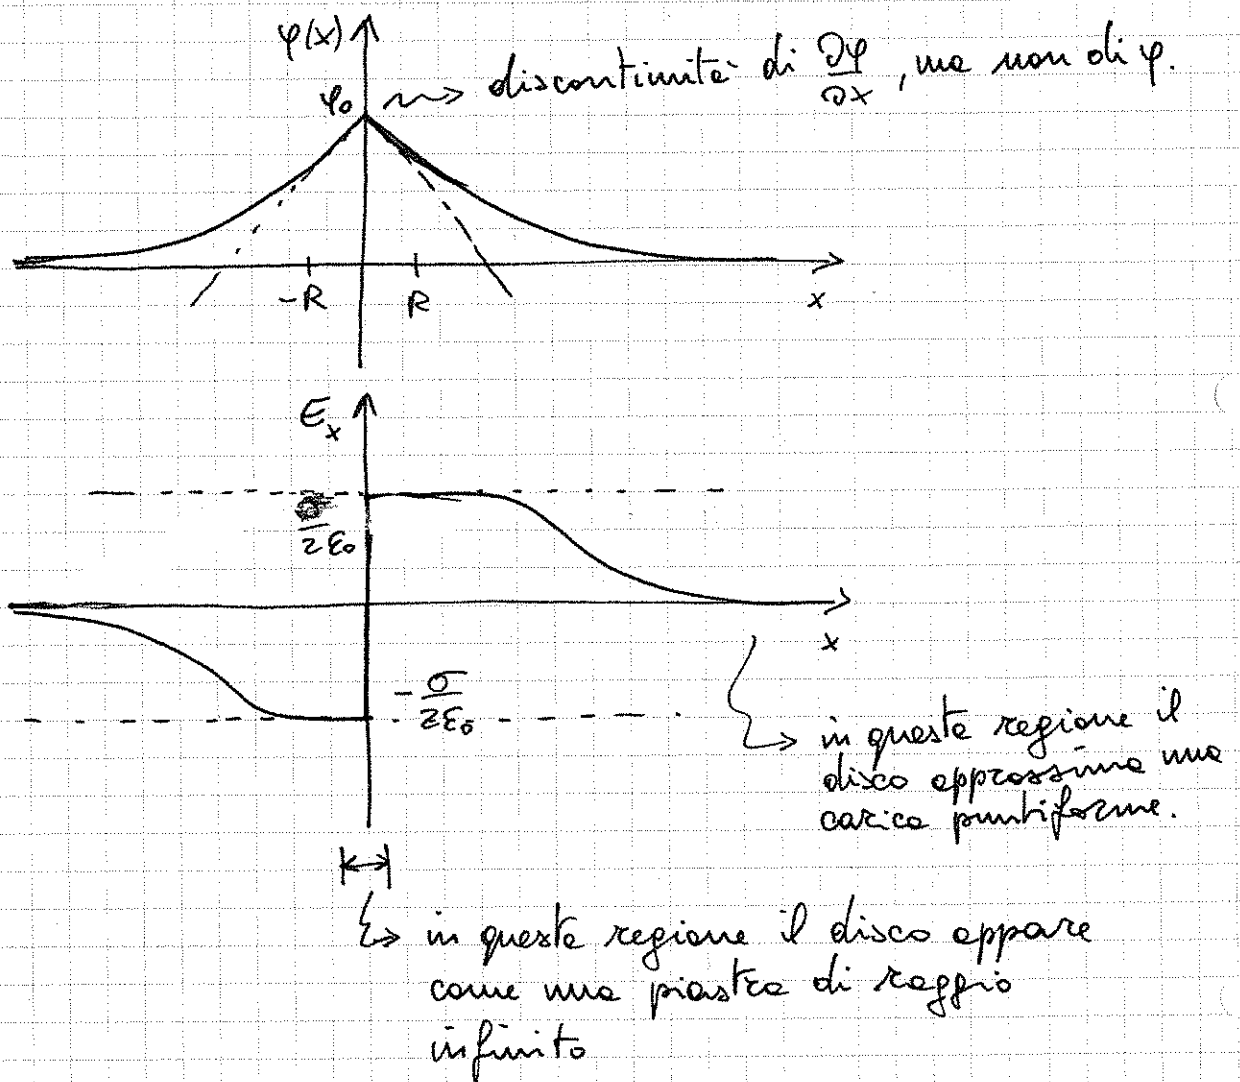 φ(x)
φ₀ ⇝ discontinuità di ∂φ/∂x, ma non di φ.
-R R x
E_x
σ/2ε₀
x
-σ/2ε₀
in questa regione il
disco approssima una
carica puntiforme.
in questa regione il disco appare
come una piastra di raggio
infinito